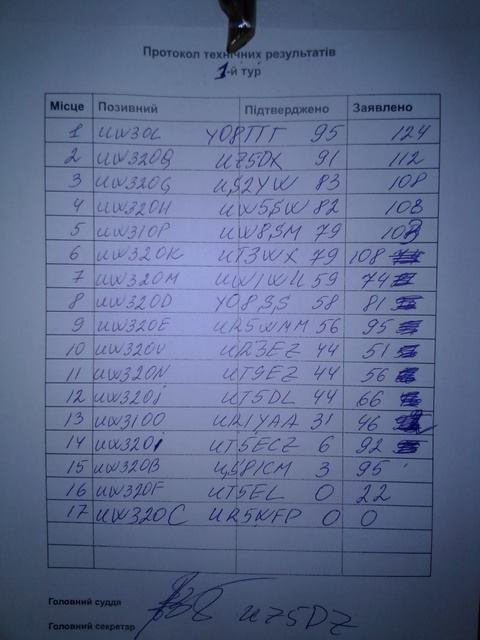 Протокол технічних результатів
1-й тур
Місце Позивний Підтверджено Заявлено
1 UW30L YO8TTT 95 124
2 UW320Q UZ5DX 91 112
3 UW320G US2YW 83 108
4 UW320H UW5SW 82 108
5 UW310P UW8SM 79 108
6 UW320K UT3WX 79 108
7 UW320M UW1WU 59 74
8 UW320D YO8SS 58 81
9 UW320E UR5WMM 56 95
10 UW320U UR3EZ 44 51
11 UW320N UT9EZ 44 56
12 UW320J UT5DL 44 66
13 UW310O UR1YAA 31 46
14 UW320I UT5ECZ 6 92
15 UW320B US8ICM 3 95
16 UW320F UT5EL 0 22
17 UW320C UR5WFP 0 0
Головний суддя
UZ5DZ
Головний секретар